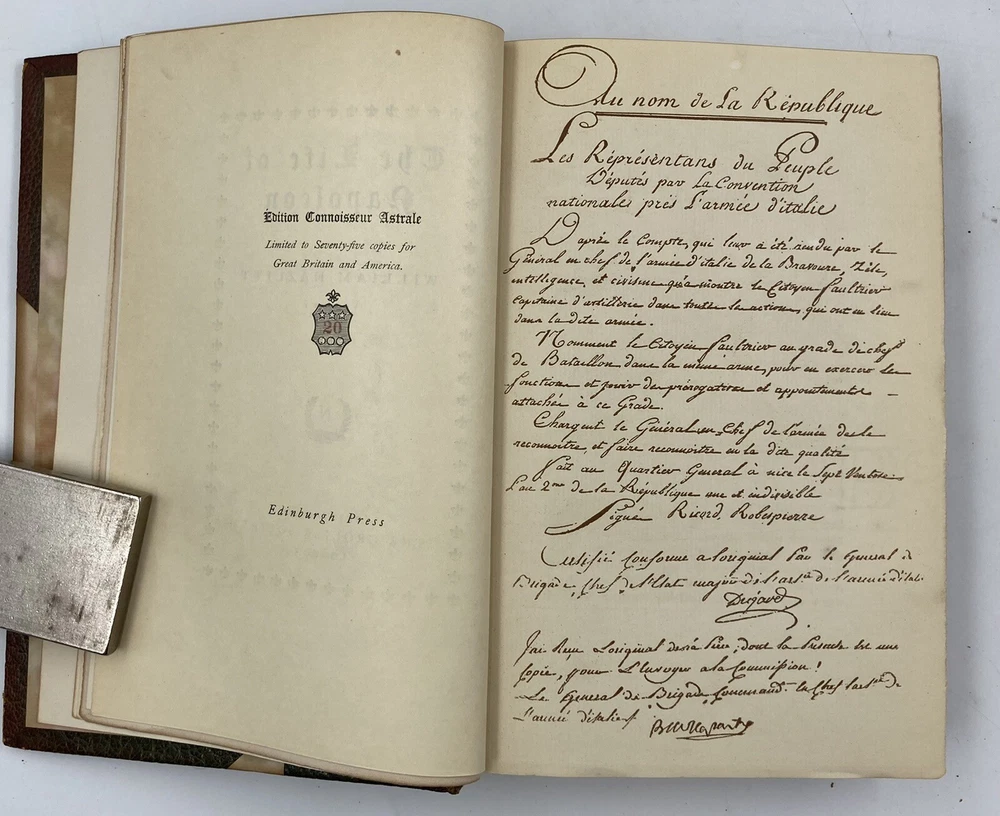 Édition Connoisseur Astrale
Limited to Seventy-five copies for
Great Britain and America.
20
Edinburgh Press
Au nom de La République
Les Réprésentans du Peuple
Députés par La Convention
nationale, près L'armée d'italie
D'après le Compte, qui leur à été rendu par le
Général en chef de l'armée d'italie de la Bravoure, Zèle,
intelligence, et civisme qu'a montré le Citoyen faultrier
Capitaine d'artillerie dans toutes les actions, qui ont eu lieu
dans la dite armée.
Nomment le Citoyen faultrier au grade de chef
de Bataillon dans la même arme, pour en exercer les
fonctions et jouir des prérogatives et appointements
attachés à ce Grade.
Chargent le Général en Chef de l'armée de le
reconnoitre, et faire reconnoitre en la dite qualité
fait au Quartier Général à nice le Sept Ventose
L'an 2me de la République une et indivisible
Signé Ricord, Robespierre
Certifié Conforme a loriginal Par le General de
Brigade, Chef de l'Etat major de l'artie de l'armée d'itali
Dujard
J'ai Reçu L'original dont la Presente est une
Copie, pour L'envoyer a la Commission
Le General de Brigade Command.t en Chef l'artie de
L'armée d'italie